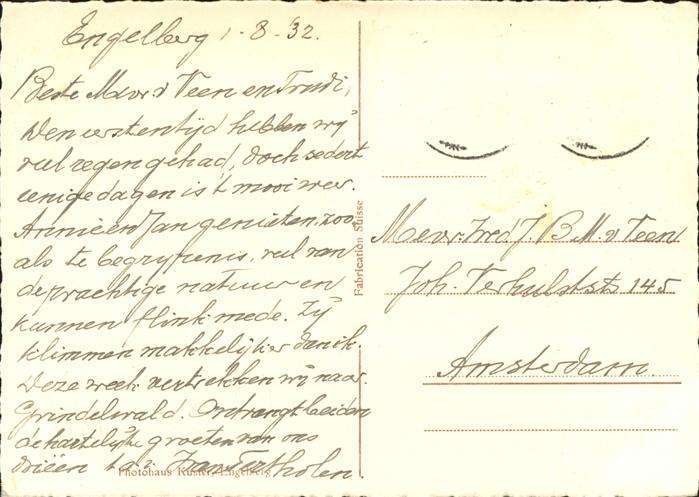 Engelberg 1-8-'32.
Beste Mevr. v Veen en Trudi,
Den eersten tijd hebben wij
veel regen gehad, doch sedert
eenige dagen is 't mooi weer.
Annie en Jan genieten, zoo
als te begrijpen is, veel van
de prachtige natuur en
kunnen flink mede. Zij
klimmen makkelijker dan ik.
Deze week vertrekken wij naar
Grindelwald. Ontvangt beiden
de hartelijke groeten van ons
drieën t.a.v. Jan
Photohaus Kuster, Engelberg
Fabrication Suisse
Mevr. Wed. J. B. M. v Veen
Joh. Verhulststr 145
Amsterdam.